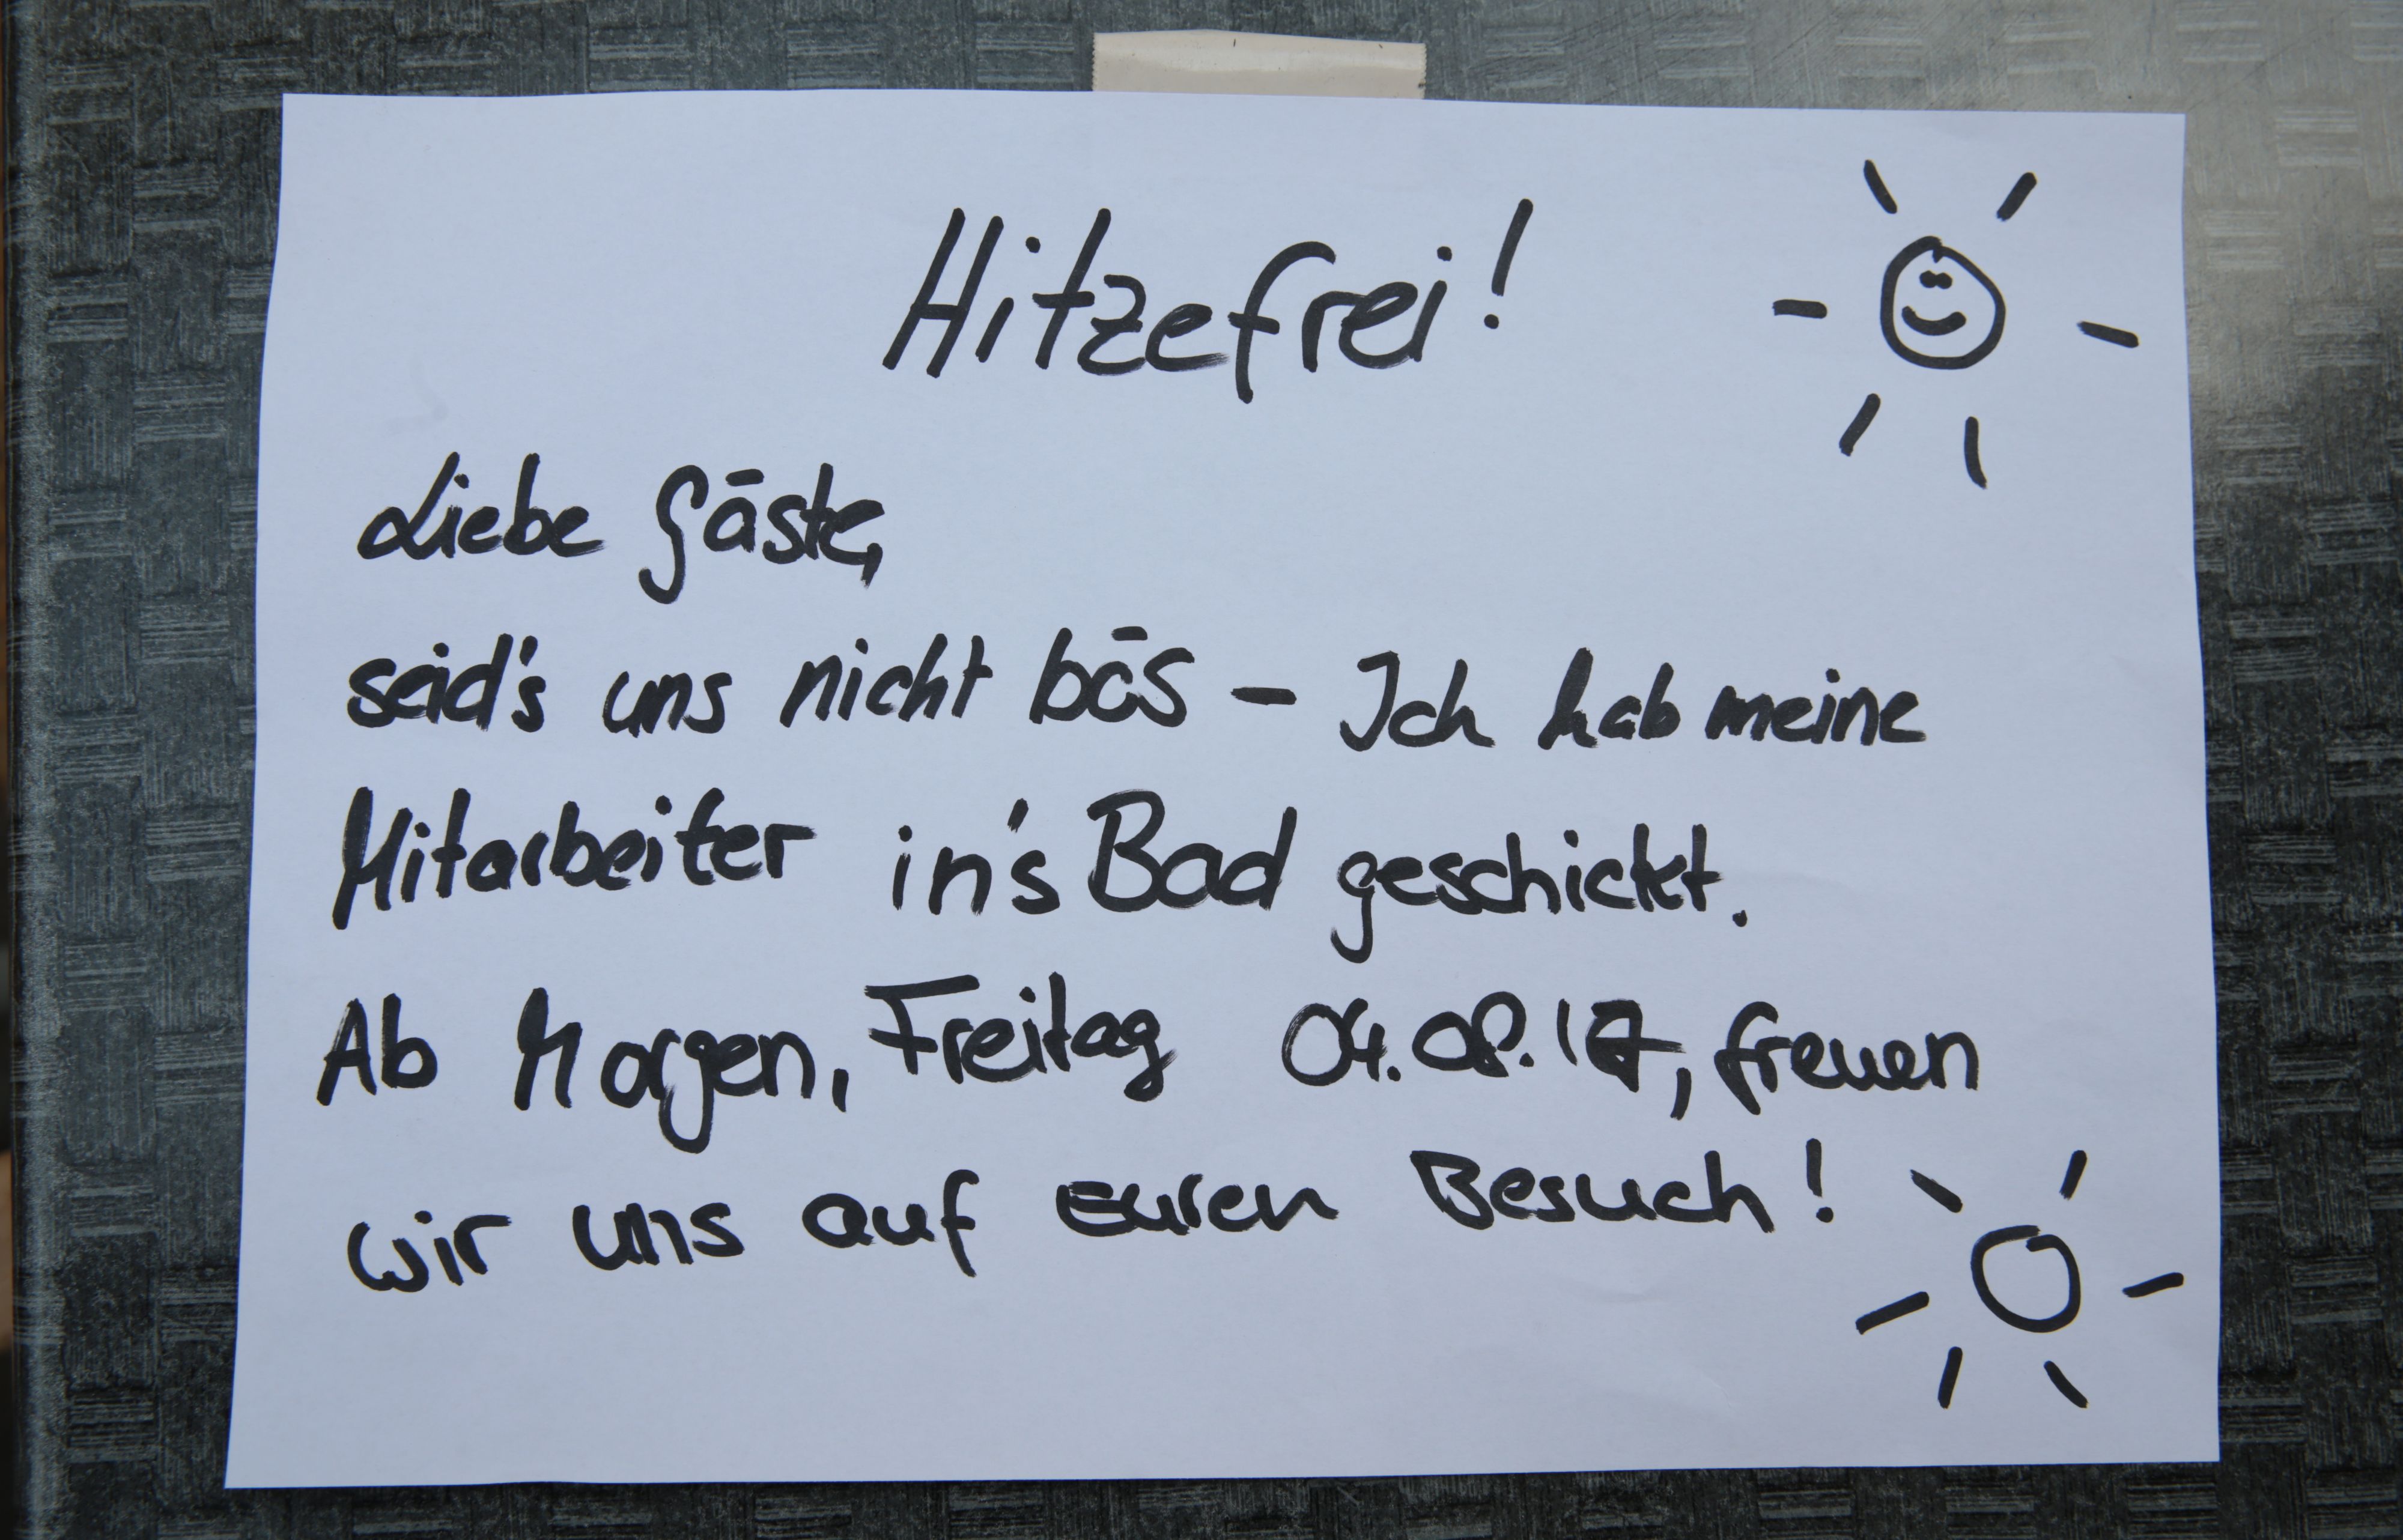 Hitzefrei!
Liebe Gäste,
seid's uns nicht bös – Ich hab meine
Mitarbeiter in's Bad geschickt.
Ab Morgen, Freitag 04.08.17, freuen
wir uns auf Euren Besuch!